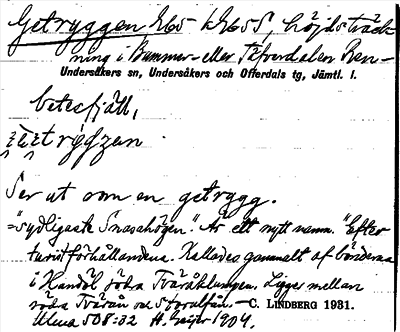 Getryggen 265 b 265 S, höjdsträck-
ning i Bummer- eller Täfverdalen Ren-
Undersåkers sn, Undersåkers och Offerdals tg, Jämtl. l.
betesfjäll,
Ser ut som en getrygg.
="sydligaste Snasahögen". Är ett nytt namn. "Efter
turistförhållandena. Kallades gammalt af bönderna
i Handöl södra Tväråklumpen. Ligger mellan
södra Tvärån och Storulfån. — C. LINDBERG 1931.
Ulma 508:32 H. Geijer 1904.